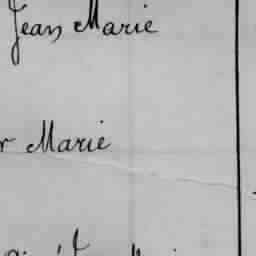 Jean Marie
r Marie